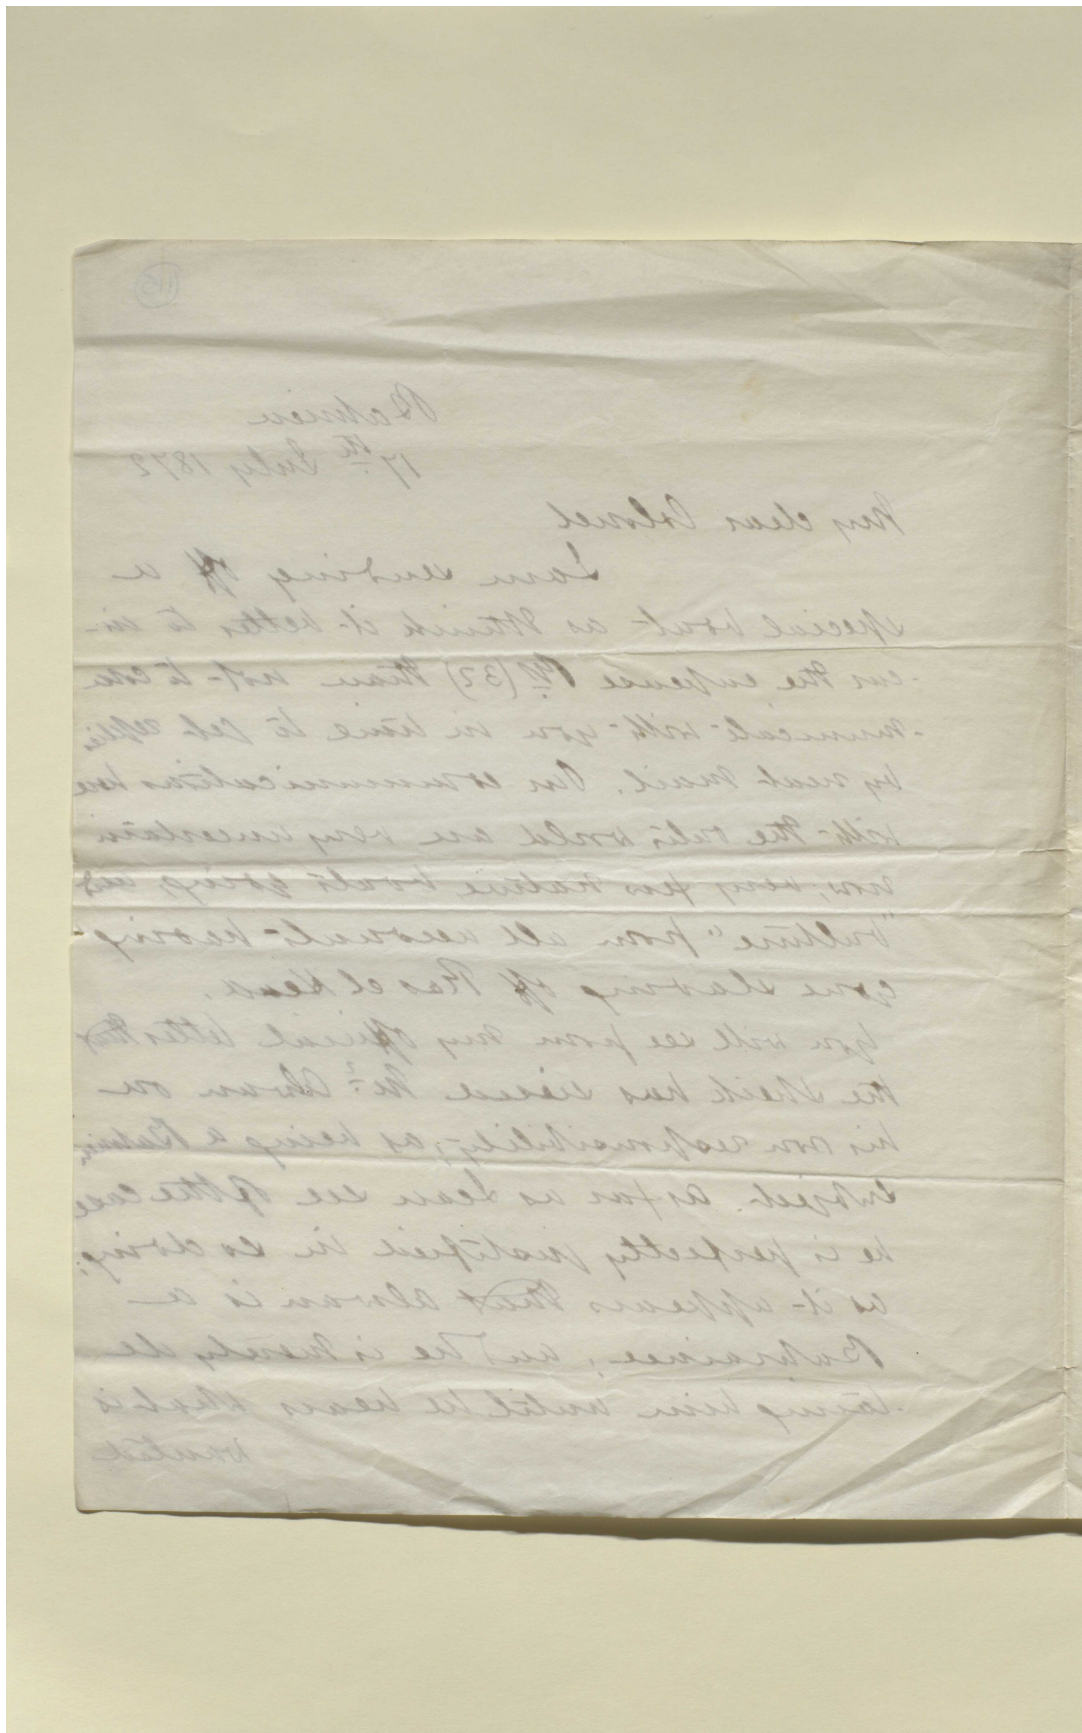 115
Bahrein
17th July 1872
My dear Colonel
I am sending off a
special boat as I think it better to in-
-cur the expense Rs (32) than not to com
-municate with you in time to get replies
by next mail. Our communications here
with the outer world are very uncertain
now, very few native boats going, and
"Vulture" from all accounts having
gone slaving off Ras el Head.
You will see from my official letter that
the Sheik has seized Mr. Alwan on
his own responsibility, as being a Bahrein
subject. As far as I can see of the case
he is perfectly justified in so doing,
as it appears that Alwan is a
Bahrainee, and he is merely de
-taining him until he hears what is
wanted